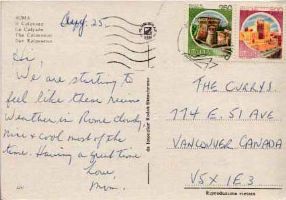 ROMA
Il Colosseo
Le Colysée
The Colosseum
Das Kolosseum
Sept. 25.
Sir,
We are starting to
feel like these ruins
Weather in Rome cloudy,
nice & cool most of the
time. Having a great time
Love,
Mom.
THE CURRYS.
774 E. 51 AVE
VANCOUVER CANADA
V5X 1E3.
Riproduzione vietata